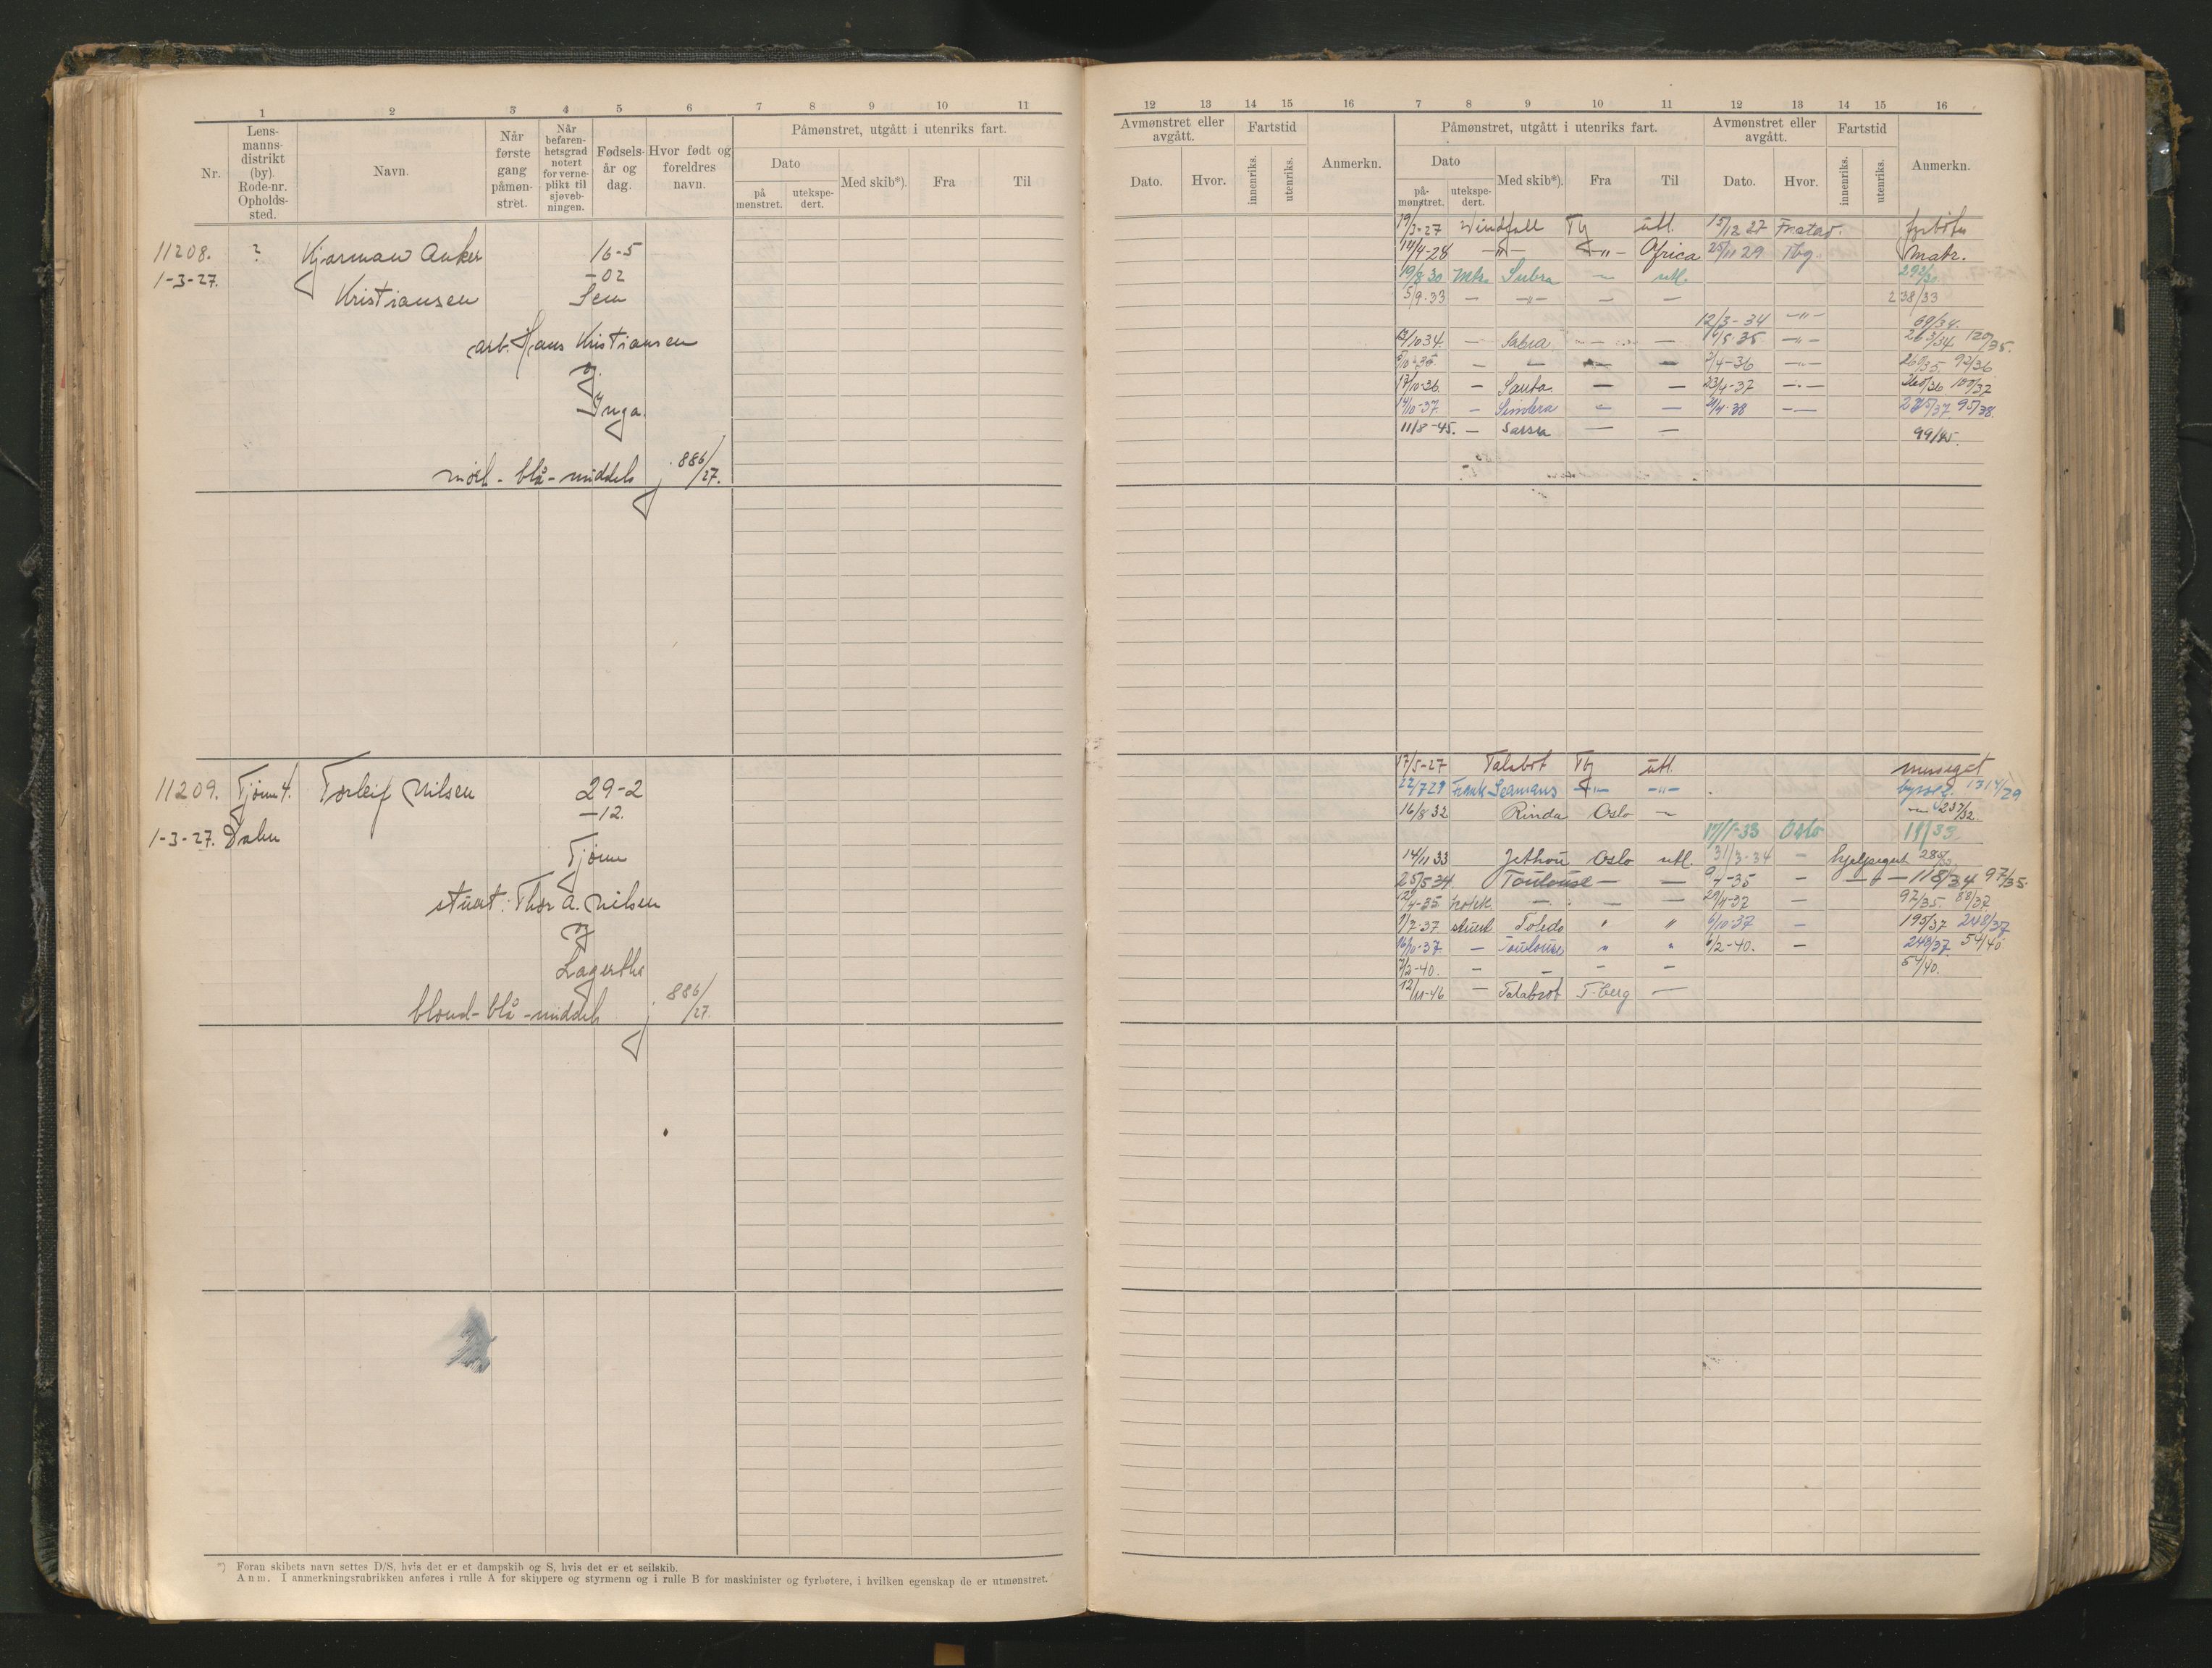 1 2 3 4 5 6 7 8 9 10 11
Nr.
Lensmannsdistrikt (by). Rode-nr. Opholdssted.
Navn.
Når første gang påmønstret.
Når befarenhetsgrad notert for verneplikt til sjøvebningen.
Fødselsår og dag.
Hvor født og foreldres navn.
Påmønstret, utgått i utenriks fart.
Dato
på mønstret.
utekspedert.
Med skib*).
Fra
Til
11208. ? Kjarman Anker 16-5
1-3-27. -02
Kristiansen Sem
arb. Hans Kristiansen
og
Inga.
mørk - blå - middels j. 886/27.
11209. Tjøm 4. Torleif Nilsen 29-2
-12.
1-3-27. Dalen
Tjøm
stuert: Thor A. Nilsen
og
Lagertha
blond - blå - middels j. 886/27.
*) Foran skibets navn settes D/S, hvis det er et dampskib og S, hvis det er et seilskib.
Anm. I anmerkningsrubrikken anføres i rulle A for skippere og styrmenn og i rulle B for maskinister og fyrbøtere, i hvilken egenskap de er utmønstret.
12 13 14 15 16 7 8 9 10 11 12 13 14 15 16
Avmønstret eller avgått.
Dato.
Hvor.
Fartstid
innenriks.
utenriks.
Anmerkn.
Påmønstret, utgått i utenriks fart.
Dato
påmønstret.
utekspedert.
Med skib*).
Fra
Til
Avmønstret eller avgått.
Dato.
Hvor.
Fartstid
innenriks.
utenriks.
Anmerkn.
19/3-27 Windfall Tbg utl. 15/12 27 Fr.stad. fyrbøter
14/4-28 -"- -"- Africa 25/11 29 Tbg. Matr.
19/8 30 Mtr. Subra - utl. 292/30
5/9-33 - -"- - - 238/33
12/3-34 -"- 69/34.
/10 34. - Sabra - - 16/5-35 -"- 263/34 120/35.
/10-35 - - - - /4-36 -"- 260/35 92/36
17/10-36. - Santa - - 23/4-37 -"- 260/36 100/37
14/10-37. - Simbra - - 21/4-38 -"- 275/37 95/38.
11/8-45. - Sarsra - - 99/45.
17/5-27 Talabot Tbg utl. messegut
22/7 29 Frank Seamans -"- -"- bysseg. 1314/29
16/8 32 Rinda Oslo - - 237/32.
17/1-33 Oslo 19/33.
14/11 33 Jethou Oslo utl. 31/3-34 - hjelpegut 288/33
25/5 34. Toulouse - - 9/4-35 - -"- 118/34 97/35.
12/4-35 kokk. - - - 29/4-37 - 97/35. 88/37
1/7-37 stuert Toledo " " 6/10-37 - 195/37 248/37
16/10-37. - Toulouse " " 6/2-40. - 248/37 54/40.
7/2-40. - - - - 54/40.
12/11-46 - Talabot T.berg -